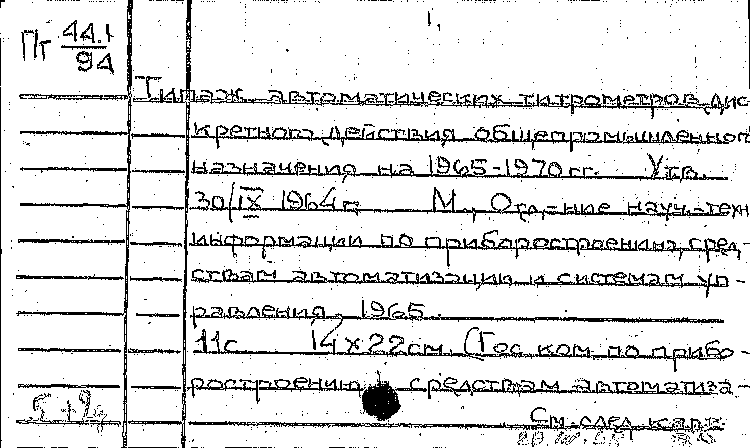 1.
Пт 44.1
94
Типаж автоматических титрометров дис-
кретного действия общепромышленного
назначения на 1965-1970 гг. Утв.
30/IX 1964 г. М., Отд-ние науч.-техн
информации по приборостроению, сред-
ствам автоматизации и системам уп-
равления, 1965.
11 с 14 х 22 см. (Гос ком. по прибо-
ростроению, средствам автоматиза-
См. след. карт.